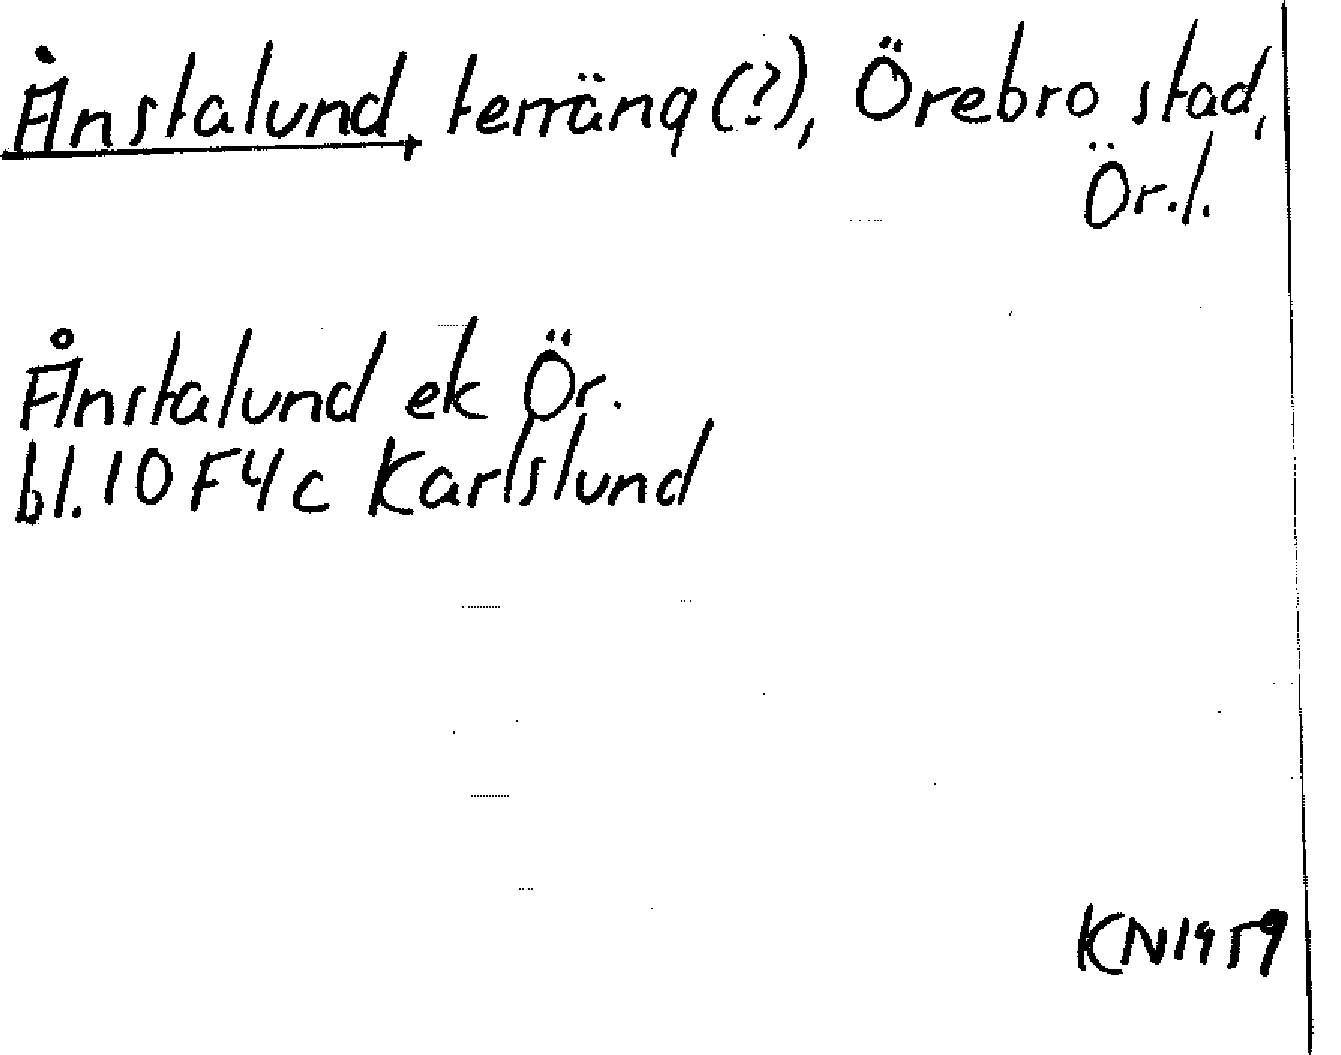 Ånstalund, terräng (?), Örebro stad,
Ör.l.
Ånstalund ek Ör.
bl. 10 F 4 c Karlslund
KN 1959